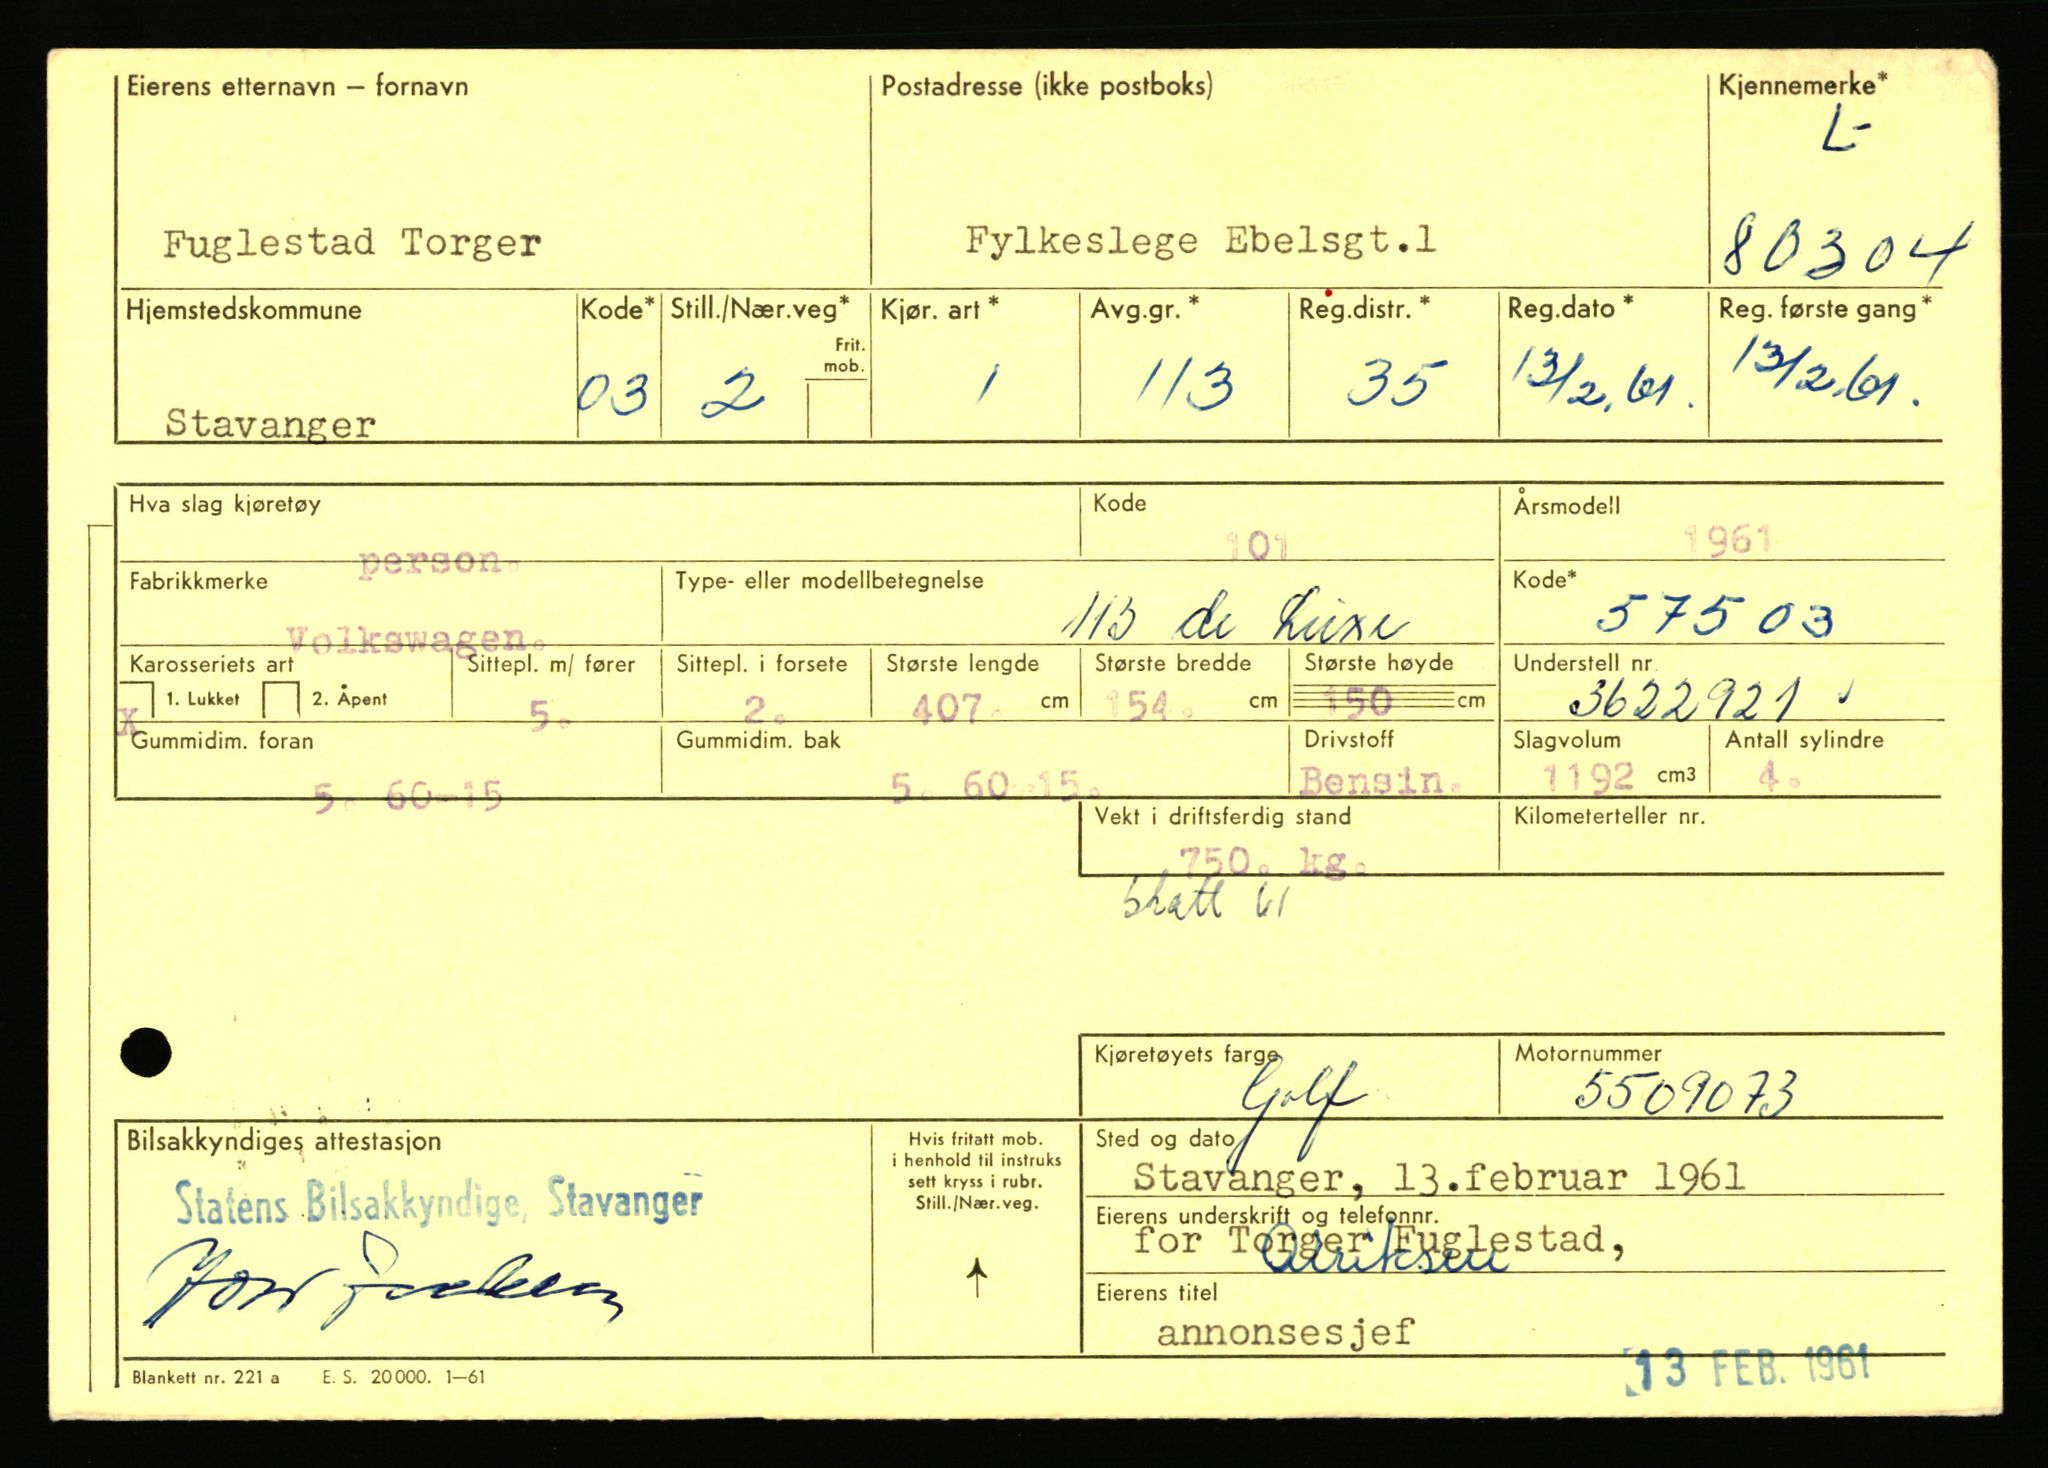 Eierens etternavn – fornavn Postadresse (ikke postboks) Kjennemerke*
L-
Fuglestad Torger Fylkeslege Ebelsgt.1 80304
Hjemstedskommune Kode* Still./Nær.veg* Kjør. art* Avg.gr.* Reg.distr.* Reg.dato* Reg. første gang*
Frit.
mob.
Stavanger 03 2 1 113 35 13/2.61. 13/2.61.
Hva slag kjøretøy Kode Årsmodell
person. 101 1961
Fabrikkmerke Type- eller modellbetegnelse Kode*
Volkswagen. 113 de Luxe 57503
Karosseriets art Sittepl. m/ fører Sittepl. i forsete Største lengde Største bredde Største høyde Understell nr.
X 1. Lukket 2. Åpent 5. 2. 407. cm 154. cm 150 cm 3622921
Gummidim. foran Gummidim. bak Drivstoff Slagvolum Antall sylindre
5. 60-15 5. 60-15. Bensin. 1192 cm3 4.
Vekt i driftsferdig stand Kilometerteller nr.
750. kg.
skatt 61
Kjøretøyets farge Motornummer
Golf 5509073
Bilsakkyndiges attestasjon
Statens Bilsakkyndige, Stavanger
Hvis fritatt mob.
i henhold til instruks
sett kryss i rubr.
Still./Nær.veg.
Sted og dato
Stavanger, 13.februar 1961
Eierens underskrift og telefonnr.
for Torger Fuglestad,
Eierens titel
annonsesjef
13 FEB. 1961
Blankett nr. 221 a E. S. 20 000. 1–61